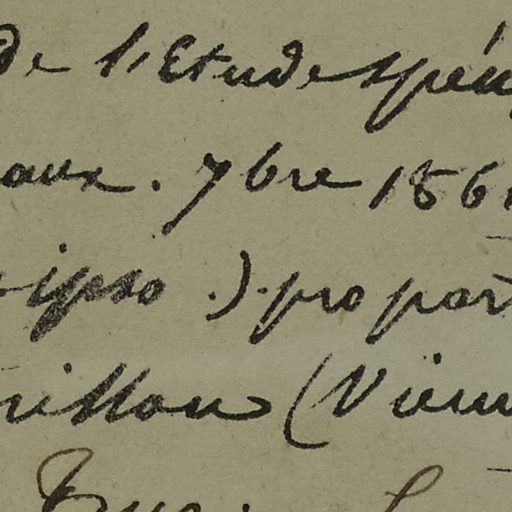 de l'Etude spéci
aux. 7bre 186
ipso.). pro part
rillon (Vienn